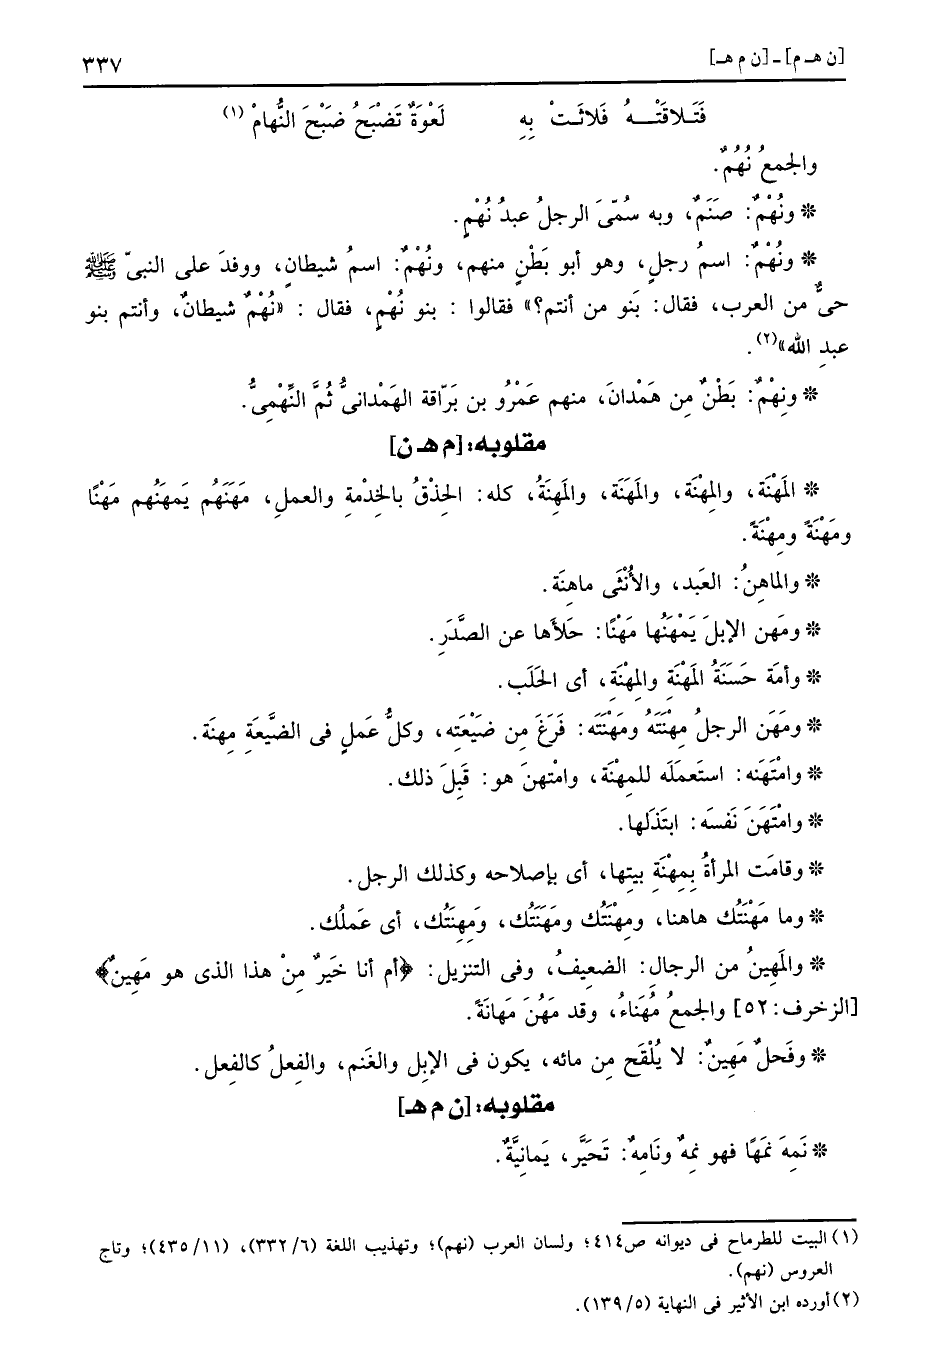 [ن هـ م] ـ [ن م هـ] ٣٣٧
فَتَـلاقَتْـــهُ فَلاثَـتْ بِهِ لَعْوَةٌ تَضْبَحُ ضَبْحَ النُّهامْ (١)
والجمعُ نُهُمٌ.
❊ ونُهْمٌ: صَنَمٌ، وبه سُمّىَ الرجلُ عبدُ نُهْمٍ.
❊ ونُهْمٌ: اسمُ رجلٍ، وهو أبو بَطْنٍ منهم، ونُهْمٌ: اسمُ شيطانٍ، ووفدَ على النبىّ ﷺ
حىٌّ من العرب، فقال: بَنو من أنتم؟» فقالوا : بنو نُهْمٍ، فقال : «نُهْمٌ شيطانٌ، وأنتم بنو
عبدِ الله»(٢).
❊ ونِهْمٌ: بَطْنٌ مِن هَمْدانَ، منهم عَمْرُو بن بَرّاقة الهَمْدانىُّ ثُمَّ النِّهْمِىُّ.
مقلوبه: [م هـ ن]
❊ المَهْنَة، والمِهْنَة، والمَهَنَة، والمَهِنَةُ، كله: الحِذْقُ بالخِدْمةِ والعملِ، مَهَنَهُم يَمهَنُهم مَهْنًا
ومَهْنَةً ومِهْنَةً.
❊ والماهِنُ: العَبد، والأُنْثَى ماهِنَة.
❊ ومَهَن الإبلَ يَمْهَنُها مَهْنًا: حَلأَها عن الصَّدَرِ.
❊ وأمَة حَسَنَةُ المَهْنَةِ والمِهْنَةِ، أى الحَلَب.
❊ ومَهَن الرجلُ مِهْنَتَهُ ومَهْنَتَه: فَرَغَ مِن ضَيْعَتِه، وكلُّ عَملٍ فى الضَّيعَةِ مِهنَة.
❊ وامْتَهَنَه: استَعمَلَه للمِهْنَة، وامْتهنَ هو: قَبِلَ ذلك.
❊ وامْتَهَنَ نَفسَه: ابتَذَلها.
❊ وقامَت المرأةُ بِمِهْنَةِ بيتِها، أى بإصلاحه وكذلك الرجل.
❊ وما مَهْنَتُك هاهنا، ومِهْنَتُك ومَهَنَتُك، وَمَهِنَتُك، أى عَملُك.
❊ والمَهينُ من الرجال: الضعيفُ، وفى التنزيل: ﴿أم أنا خَيرٌ مِنْ هذا الذى هو مَهِينٌ﴾
[الزخرف: ٥٢] والجمعُ مُهَناءُ، وقد مَهُنَ مَهانَةً.
❊ وفَحلٌ مَهينٌ: لا يُلْقَح مِن مائه، يكون فى الإبِل والغَنم، والفِعلُ كالفِعل.
مقلوبه: [ن م هـ]
❊ نَمِهَ نَمَهًا فهو نَمِهٌ ونَامِهٌ: تَحَيَّر، يَمانِيَّةٌ.
(١) البيت للطرماح فى ديوانه ص٤١٤؛ ولسان العرب (نهم)؛ وتهذيب اللغة (٣٣٢/٦)، (٤٣٥/١١)؛ وتاج
العروس (نهم).
(٢) أورده ابن الأثير فى النهاية (١٣٩/٥).